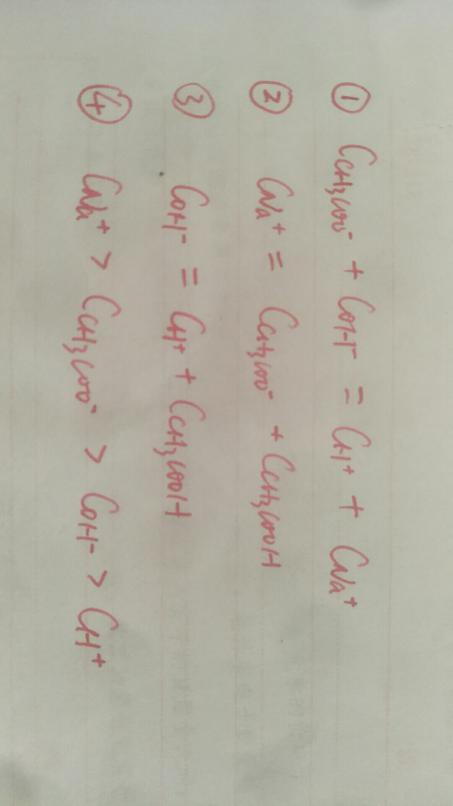 ① C_{CH₃COO⁻} + C_{OH⁻} = C_{H⁺} + C_{Na⁺}
② C_{Na⁺} = C_{CH₃COO⁻} + C_{CH₃COOH}
③ C_{OH⁻} = C_{H⁺} + C_{CH₃COOH}
④ C_{Na⁺} > C_{CH₃COO⁻} > C_{OH⁻} > C_{H⁺}